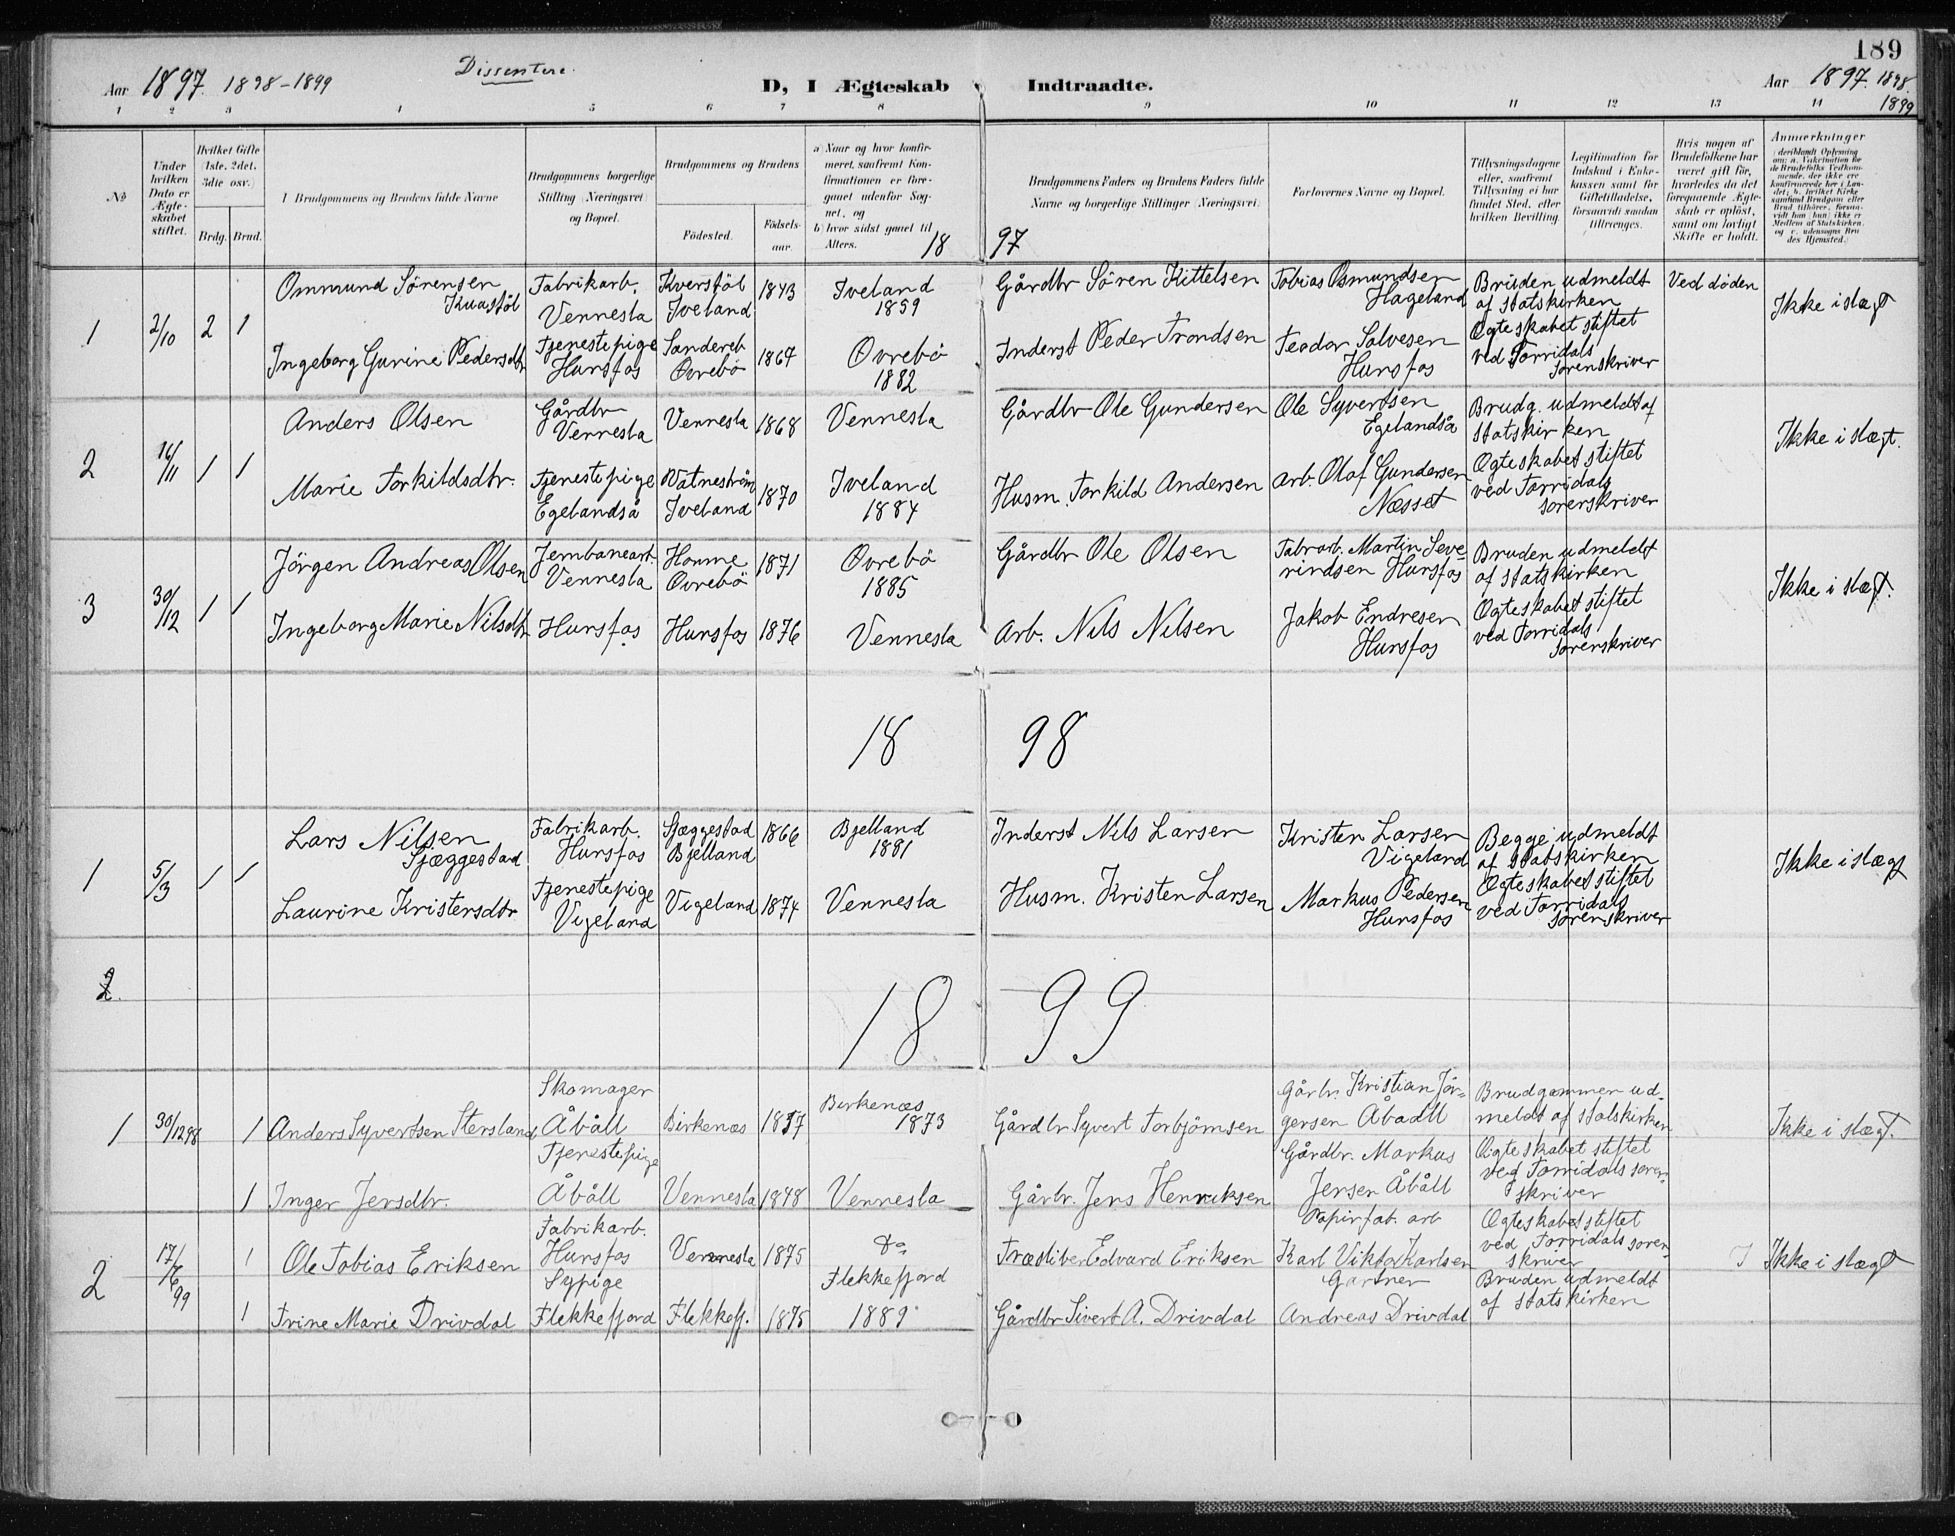 189
Aar 1897 1898-1899
Dissentere.
D, I Ægteskab Indtraadte.
Aar 1897. 1898.
1899
1 2 3 4 5 6 7 8 9 10 11 12 13 14
No
Under hvilken Dato er Ægteskabet stiftet.
Hvilket Gifte (1ste, 2det, 3die osv.)
Brdg. Brud.
Brudgommens og Brudens fulde Navne
Brudgommens borgerlige Stilling (Næringsvei) og Bopæl.
Brudgommens og Brudens
Födested.
Födselsaar.
a) Naar og hvor konfirmeret, saafremt Konfirmationen er foregaaet udenfor Sognet, og
b) hvor sidst gaaet til Alters.
18 97
Brudgommens Faders og Brudens Faders fulde Navne og borgerlige Stillinger (Næringsvei).
Forlovernes Navne og Bopæl.
Tillysningsdagene eller, saafremt Tillysning ei har fundet Sted, efter hvilken Bevilling.
Legitimation for Indskud i Enkekassen samt for Giftetilladelse, forsaavidt saadan tiltrænges.
Hvis nogen af Brudefolkene har været gift før, hvorledes da det foregaaende Ægteskab er opløst, samt om lovligt Skifte er holdt.
Anmærkninger
(deriblandt Oplysning om: a. Vakcination for de Brudefolks Vedkommende, der ikke ere konfirmerede her i Landet; b. hvilket Kirkesamfund Brudgom eller Brud tilhører, forsaavidt han (hun) ikke er Medlem af Statskirken, og c. udensogns Brudes Hjemsted.)
1
2/10
2 1
Ommund Sørensen
Kvastöl
Fabrikarb.
Vennesla
Kverstöl
Iveland
1843
Iveland
1859
Gårdbr Sören Kittelsen
Tobias Osmundsen
Hageland
Bruden udmeldt
af statskirken
Ved döden
Ikke i slægt
Ingeborg Gurine Pedersdtr
Tjenestepige
Hunsfos
Sandereb
Övrebö
1867
Övrebö
1882
Inderst Peder Trondsen
Teodor Salvesen
Hunsfos
Ögteskabet stiftet
ved Torridals
sorenskriver
2
16/11
1 1
Anders Olsen
Gårdbr
Vennesla
Vennesla
1868
Vennesla
Gårdbr Ole Gundersen
Ole Syvertsen
Egelandså
Brudg. udmeldt af
statskirken
Ikke i slægt.
Marie Torkildsdtr.
Tjenestepige
Egelandså
Vatneström
Iveland
1870
Iveland
1884
Husm. Torkild Andersen
arb. Olaf Gundersen
Næsset
Ögteskabet stiftet
ved Torridals
sorenskriver
3
30/12
1 1
Jörgen Andreas Olsen
Jernbanearb.
Vennesla
Homme
Övrebö
1871
Övrebö
1885
Gårdbr Ole Olsen
Fabrarb. Martin Seve-
rindsen Hunsfos
Bruden udmeldt
af statskirken
Ikke i slægt.
Ingeborg Marie Nilsdtr
Hunsfos
Hunsfos
1876
Vennesla
Arb. Nils Nilsen
Jakob Endresen
Hunsfos
Ögteskabet stiftet
ved Torridals
sorenskriver
18 98
1
5/3
1 1
Lars Nilsen
Sjæggestad
Fabrikarb.
Hunsfos
Sjæggestad
Bjelland
1866
Bjelland
1881
Inderst Nils Larsen
Kristen Larsen
Vigeland
Begge udmeldt
af statskirken
Ikke i slægt
Laurine Kristensdtr
Tjenestepige
Vigeland
Vigeland
1874
Vennesla
Husm. Kristen Larsen
Markus Pedersen
Hunsfos
Ögteskabet stiftet
ved Torridals
sorenskriver
2.
18 99
1
30/12 98
1
Anders Syvertsen Stersland
Skomager
Åbåll
Birkenæs
1857
Birkenæs
1873
Gårdbr Syvert Torbjörnsen
Gårbr. Kristian Jör-
gensen Åbaall
Brudgommen ud-
meldt af statskirken
Ikke i slægt.
1
Inger Jensdtr.
Tjenestepige
Åbåll
Vennesla
1848
Vennesla
Gårbr. Jens Henriksen
Gårdbr. Markus
Jensen Åbåll
Ögteskabet stiftet
ved Torridals soren-
skriver
2
17/6 99
1
Ole Tobias Eriksen
Fabrikarb.
Hunsfos
Vennesla
1875
Do
Træsliber Edvard Eriksen
Papirfab. arb
Karl Viktor Karlsen
Ögteskabet stiftet
ved Torridals soren-
skriver
Ikke i slægt
1
Trine Marie Drivdal
Sypige
Flekkefjord
Flekkefj.
1875
Flekkefjord
1889
Gårdbr Sivert A. Drivdal
Gartner
Andreas Drivdal
Bruden udmeldt
af statskirken